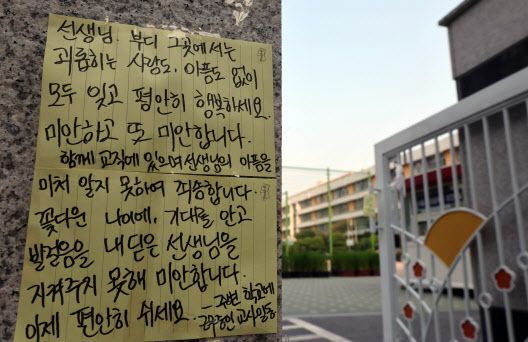 선생님. 부디 그곳에서는
괴롭히는 사람도, 아픔도 없이
모두 잊고 평안히 행복하세요.
미안하고 또 미안합니다.
함께 교직에 있으며 선생님의 아픔을
미처 알지 못하여 죄송합니다.
꽃다운 나이에, 기대를 안고
발걸음을 내딛은 선생님을
지켜주지 못해 미안합니다.
이제 편안히 쉬세요. - 주변 학교에
근무중인 교사 일동